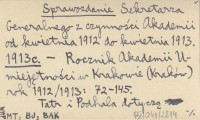 Sprawozdanie Sekretarza
Generalnego z czynności Akademii
od kwietnia 1912 do kwietnia 1913.
1913c. - Rocznik Akademii U-
miejętności w Krakowie (Kraków)
rok 1912/1913: 72-145.
Tatr i Podhala dotyczą
MT, BJ, BAK